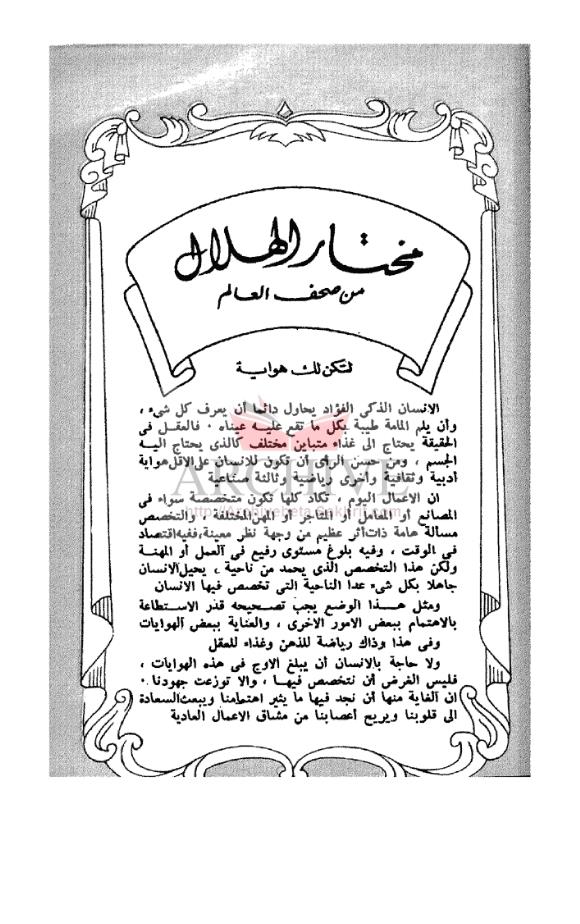 مختار الهلال
من صحف العالم
لتكن لك هواية
الانسان الذكى الفؤاد يحاول دائما أن يعرف كل شىء ،
وأن يلم المامة طيبة بكل ما تقع عليه عيناه . فالعقل فى
الحقيقة يحتاج الى غذاء متباين مختلف كالذى يحتاج اليه
الجسم ، ومن حسن الرأى أن تكون للانسان على الاقل هواية
أدبية وثقافية وأخرى رياضية وثالثة صناعية
ARCHIVE
http://Archivebeta.Sakhrit.com
ان الاعمال اليوم ، تكاد كلها تكون متخصصة سواء فى
المصانع أو المعامل أو المتاجر أو المهن المختلفة ، والتخصص
مسألة هامة ذات أثر عظيم من وجهة نظر معينة، ففيه اقتصاد
فى الوقت ، وفيه بلوغ مستوى رفيع فى العمل أو المهنة
ولكن هذا التخصص الذى يحمد من ناحية ، يحيل الانسان
جاهلا بكل شىء عدا الناحية التى تخصص فيها الانسان
ومثل هذا الوضع يجب تصحيحه قدر الاستطاعة
بالاهتمام ببعض الامور الاخرى ، والعناية ببعض الهوايات
وفى هذا وذاك رياضة للذهن وغذاء للعقل
ولا حاجة بالانسان أن يبلغ الاوج فى هذه الهوايات ،
فليس الغرض أن نتخصص فيها ، والا توزعت جهودنا .
ان الغاية منها أن نجد فيها ما يثير اهتمامنا ويبعث السعادة
الى قلوبنا ويريح أعصابنا من مشاق الاعمال العادية